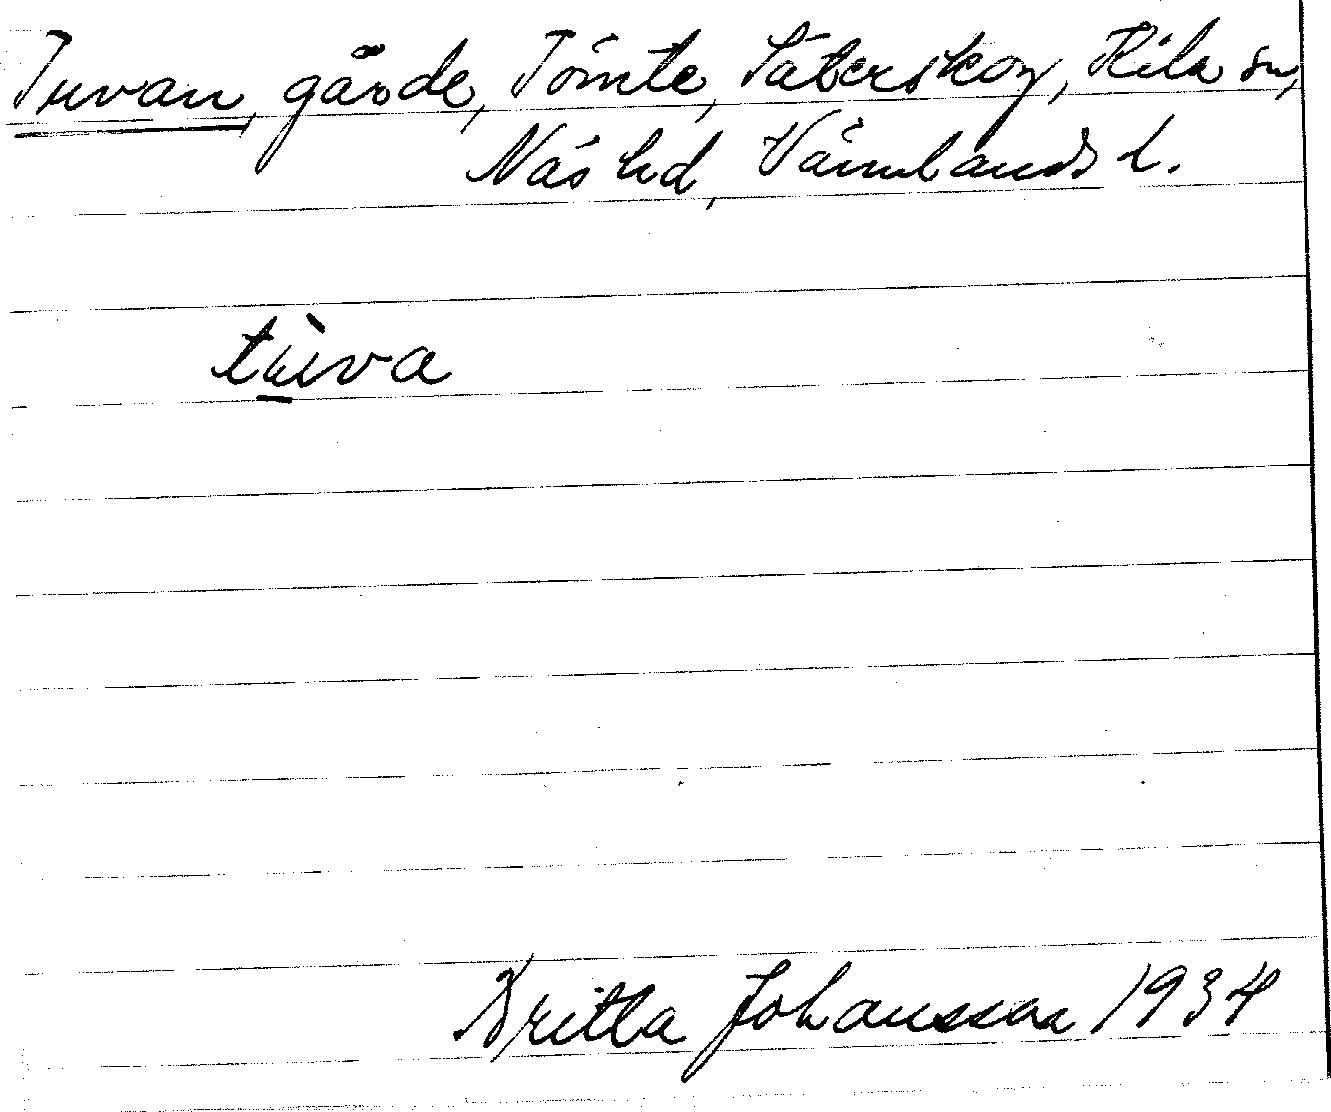 Tuvan, gärde, Tömte, Säterskog, Kila sn,
Näs hd, Värmlands l.
tùva
Britta Johansson 1934